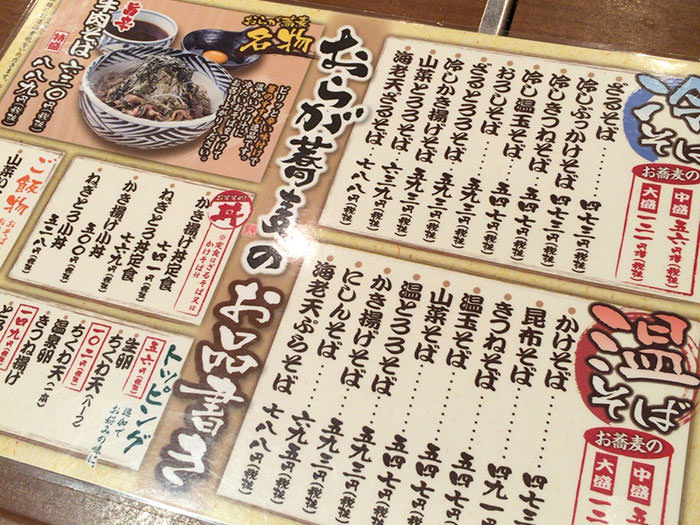 おらが蕎麦のお品書き
おらが蕎麦
名物
旨辛
牛肉そば 六三〇円(税抜)
特盛 八八九円(税抜)
冷そば
お蕎麦の
中盛 五六円増(税抜)
大盛 一二一円増(税抜)
ざるそば……四七三円(税抜)
冷しぶっかけそば 四七三円(税抜)
冷しきつねそば 五四七円(税抜)
冷し温玉そば……五四七円(税抜)
おろしそば……五四七円(税抜)
ざるとろろそば……五九三円(税抜)
冷しかき揚げそば 五九三円(税抜)
山菜とろろそば…六三九円(税抜)
海老天ざるそば…七八八円(税抜)
温そば
お蕎麦の
中盛 五
大盛 一二
かけそば……四七三
昆布そば……四九一
きつねそば……五四七円
温玉そば……五四七円(税抜)
山菜そば……五九三円(税抜)
温とろろそば……五四七円(税抜)
かき揚げそば……五九三円(税抜)
にしんそば……六九五円(税抜)
海老天ぷらそば…七八八円(税抜)
おすすめ!
丼
※定食はざるそば又はかけそば付
かき揚げ丼定食 七四一円(税抜)
ねぎとろ丼定食 六六九円(税抜)
かき揚げ小丼 五〇〇円(税抜)
ねぎとろ小丼 五二八円(税抜)
ご飯物
山菜い
トッピング
追加でお好みの味に。
五六円(税抜)
生卵
一〇二円(税抜)
ちくわ天(ハーフ)
一四九円(税抜)
ちくわ天(一本)
温泉卵
きつね揚げ
とろ